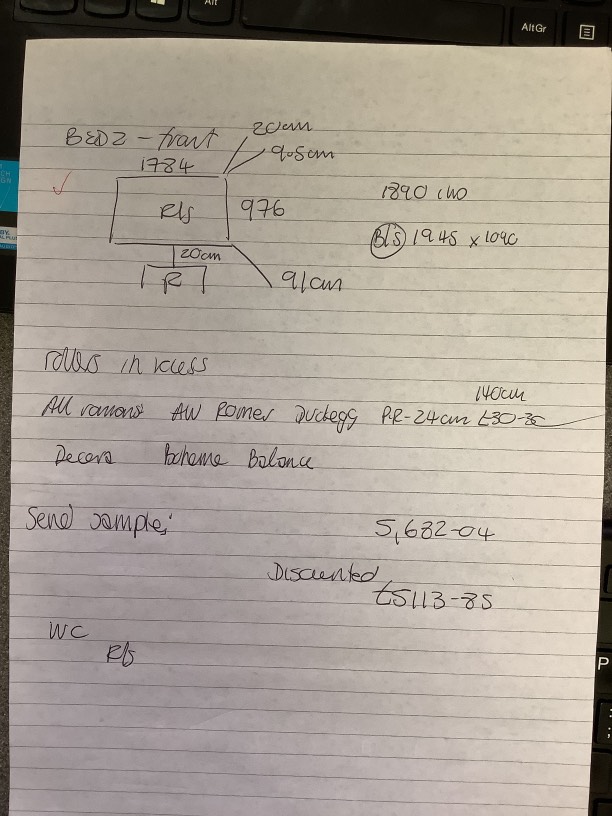 BED2 - front
20cm
9.5cm
1784
R/s
976
1890
B/S 1945 x 1090
20cm
R
91cm
rollers in recess
140cm
All romans AW Romer Duckegg PR-24cm £30-
Decora Boheme Balance
Send sample:
5,682-04
Discounted
£5113-85
WC
R/s
Alt
AltGr
P